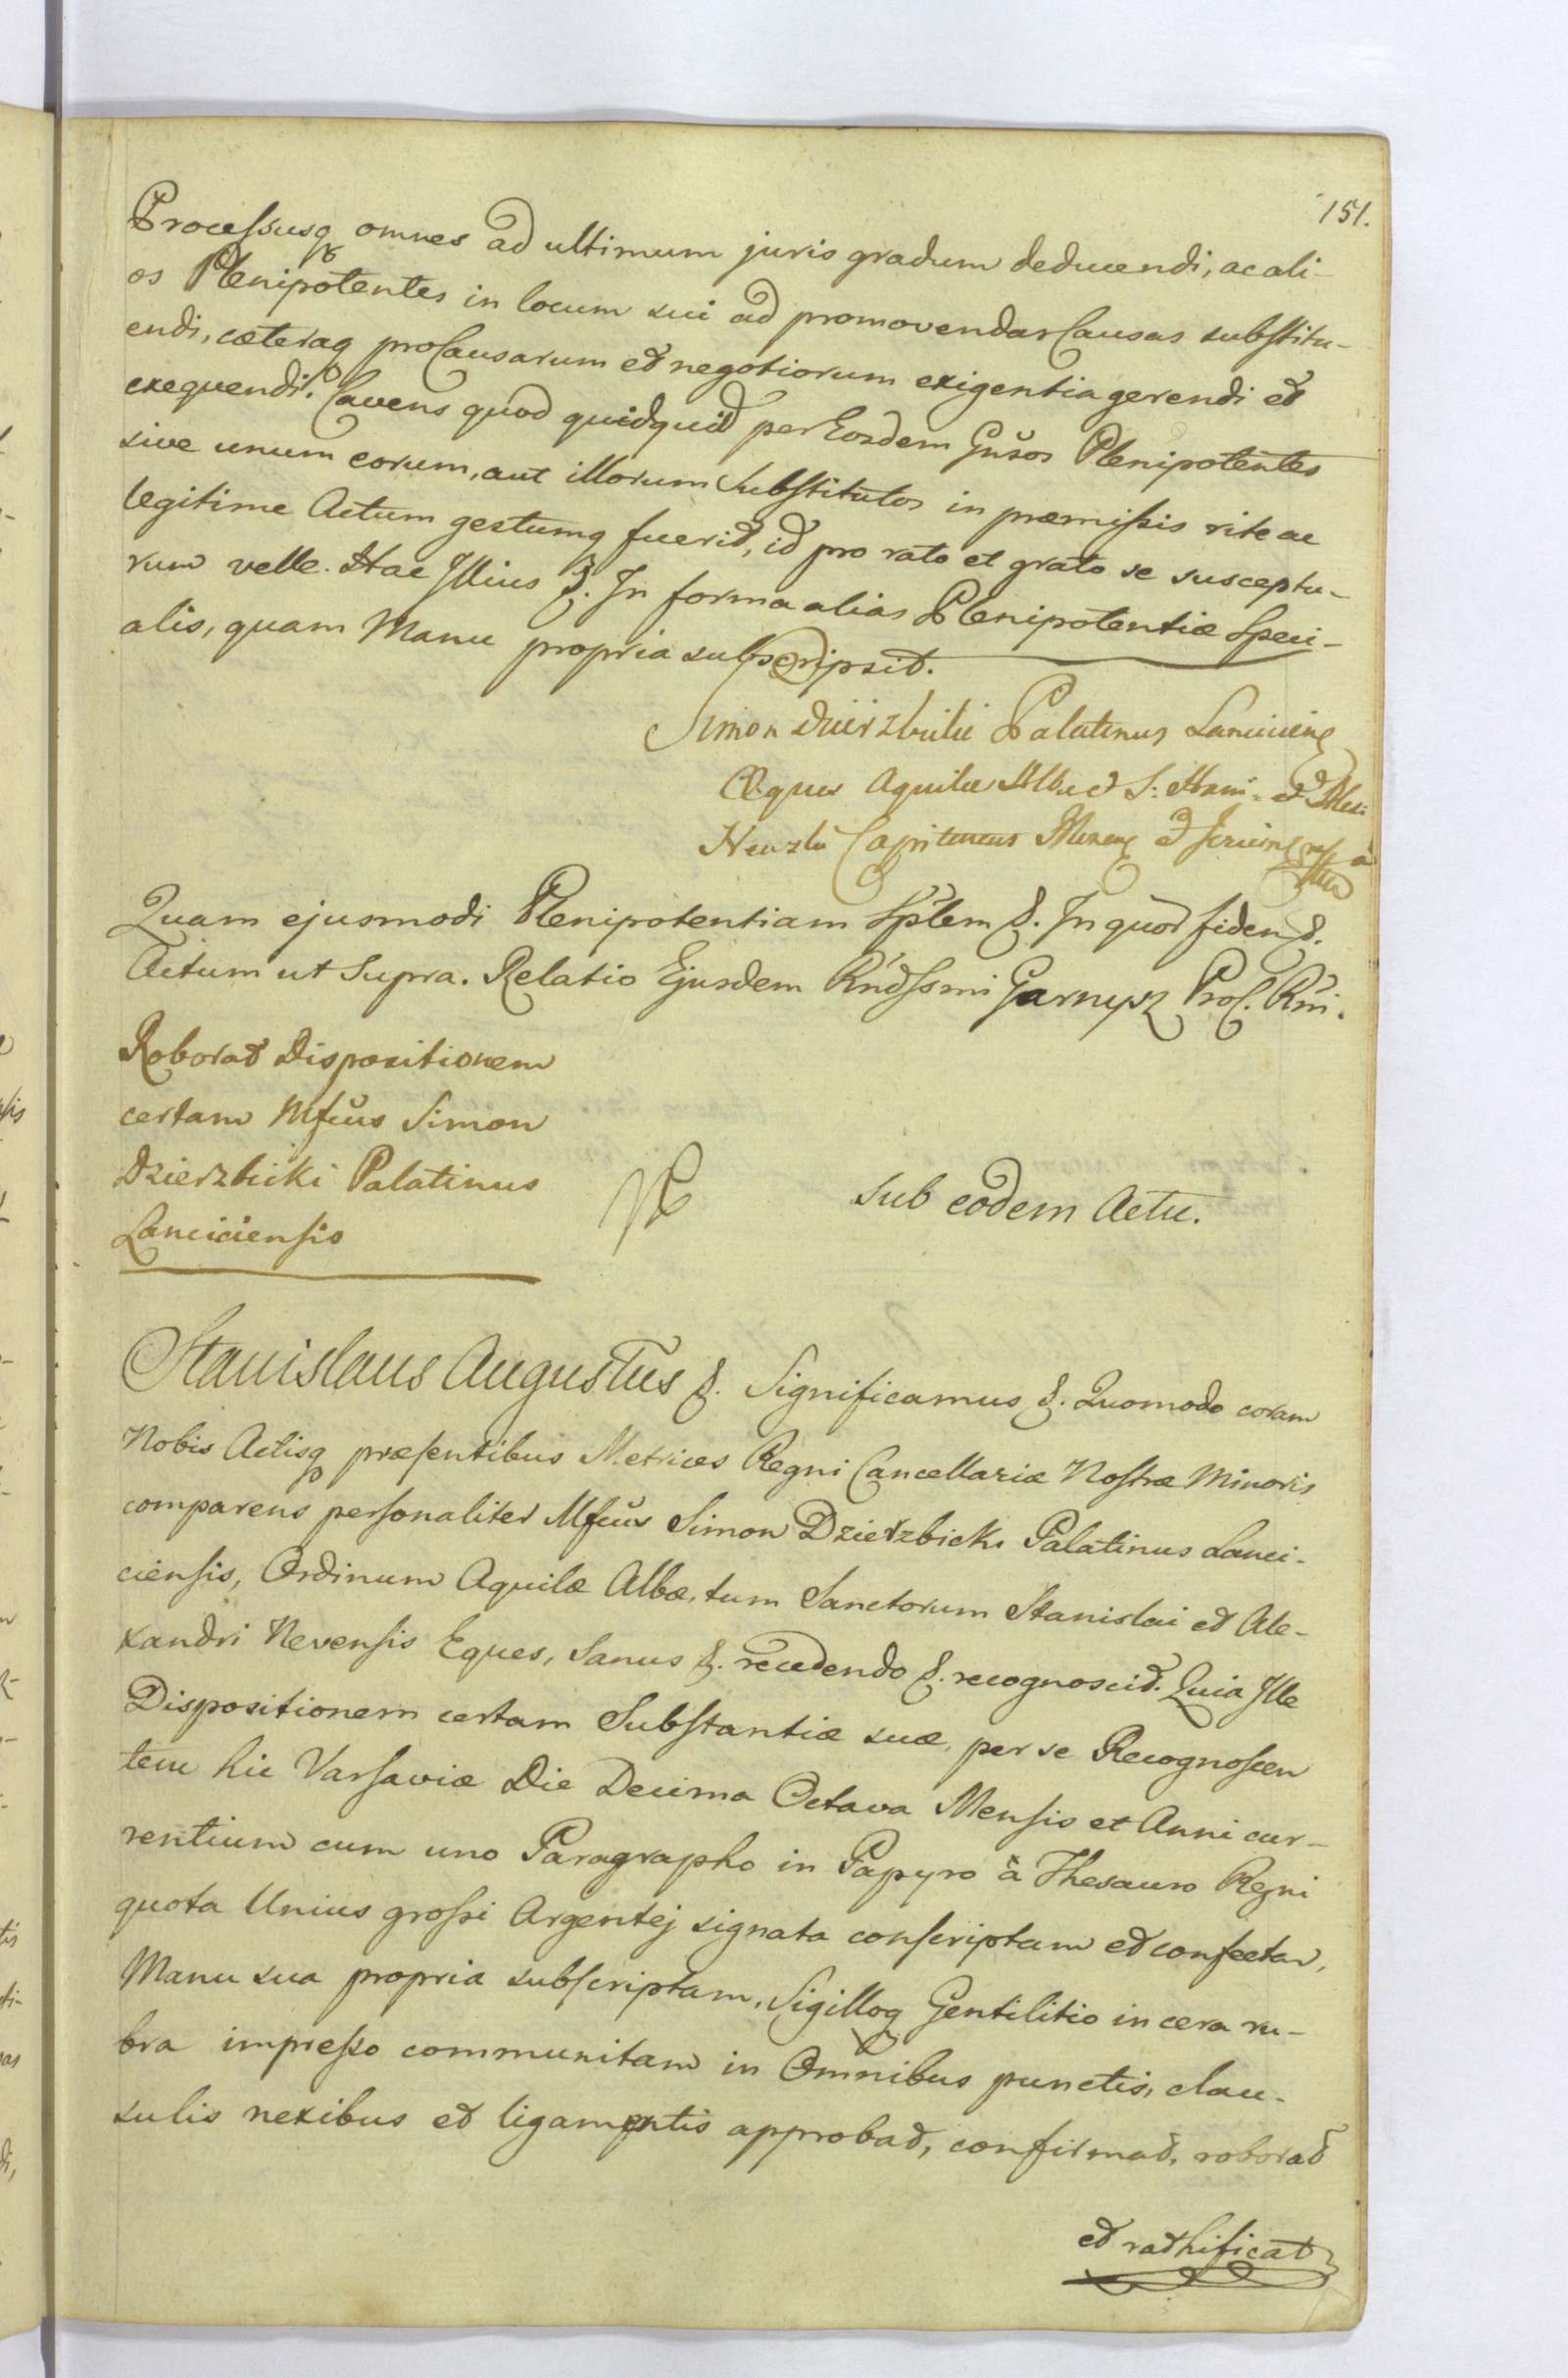 151.
Processusq omnes ad ultimum juris gradum deducendi, ac ali-
os Plenipotentes in locum sui ad promovendas Causas substitu-
endi, cæteraq pro Causarum et negotiorum exigentia gerendi et
exequendi. Cavens quod quidquid per Eosdem Gnsos Plenipotentes
sive unum eorum, aut illorum Substitutos in præmissis rite ac
legitime Actum gestumq fuerit, id pro rato et grato se susceptu-
rum velle. Hac Illius &. In forma alias Plenipotentiæ Speci-
alis, quam Manu propria subscripsit.
Simon Dzierzbicki Palatinus Lanciciens
Eques Aquilæ Albæ et S: Stani- et Alex:
Newski Capitaneus
Quam ejusmodi Plenipotentiam Splem &. In quor fidem &.
Actum ut Supra. Relatio Ejusdem Rndssmi Garnysz Proc. Rni.
Roborat Dispositionem
certam Mfcus Simon
Dzierzbicki Palatinus
Lanciciensis
sub eodem Actu.
Stanislaus Augustus &. Significamus &. Quomodo coram
Nobis Actisq præsentibus Metrices Regni Cancellariæ Nostræ Minoris
comparens personaliter Mfcus Simon Dzierzbicki Palatinus Lanci-
ciensis, Ordinum Aquilæ Albæ, tum Sanctorum Stanislai et Ale-
xandri Nevensis Eques, Sanus &. recedendo &. recognoscit. Quia Ille
Dispositionem certam Substantiæ suæ, per se Recognoscen
tem hic Varsaviæ Die Decima Octava Mensis et Anni cur-
rentium cum uno Paragrapho in Papyro à Thesauro Regni
quota Unius grossi Argentej signata conscriptam et confectam,
Manu sua propria subscriptam, Sigilloq Gentilitio in cera ru-
bra impresso communitam in Omnibus punctis, clau-
sulis nexibus et ligamentis approbat, confirmat, roborat
et rathificat